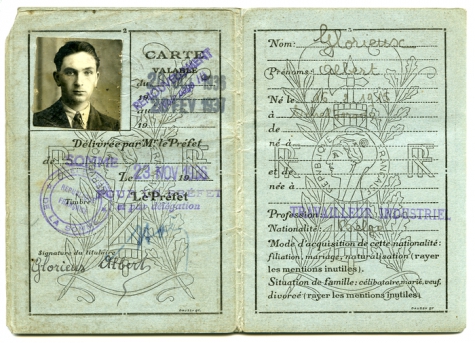 2
CARTE
VALABLE
du
19
19
RENOUVELLEMENT
Délivrée par Mr le Préfet
de SOMME
Le 23 NOV 19
Timbre
Le Préfet
POUR LE PRÉFET
et par délégation
Signature du titulaire
Glorieux Albert
3
Nom: Glorieux
Prénoms: Albert
Né le
à
de
né à
et de
née à
RÉPUBLIQUE FRANÇAISE
Profession: TRAVAILLEUR INDUSTRIEL
Nationalité:
Mode d'acquisition de cette nationalité:
filiation, mariage, naturalisation (rayer
les mentions inutiles).
Situation de famille: célibataire, marié, veuf,
divorcé (rayer les mentions inutiles)